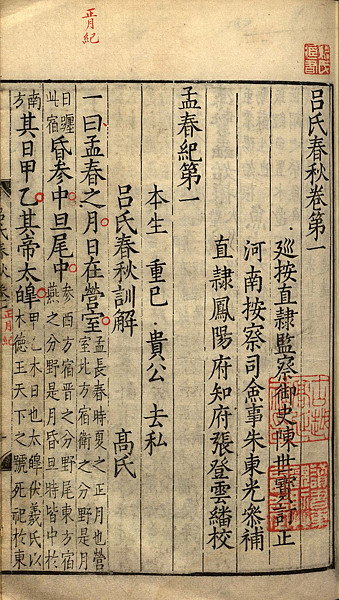 呂氏春秋卷第一
廵按直隷監察御史陳世寳訂正
河南按察司僉事朱東光叅補
直隷鳳陽府知府張登雲繙校
孟春紀第一
本生 重巳 貴公 去私
呂氏春秋訓解 高氏
一曰孟春之月日在營室孟長春時夏之正月也營
室北方宿衞之分野是月
日躔
此宿昏參中旦尾中參西方宿晉之分野尾東方宿
燕之分野是月昏旦時皆中於
南
方其日甲乙其帝太皥甲乙木日也太皥伏羲氏以
木德王天下之號死祀於東
呂氏春秋卷一
正月紀
正月紀